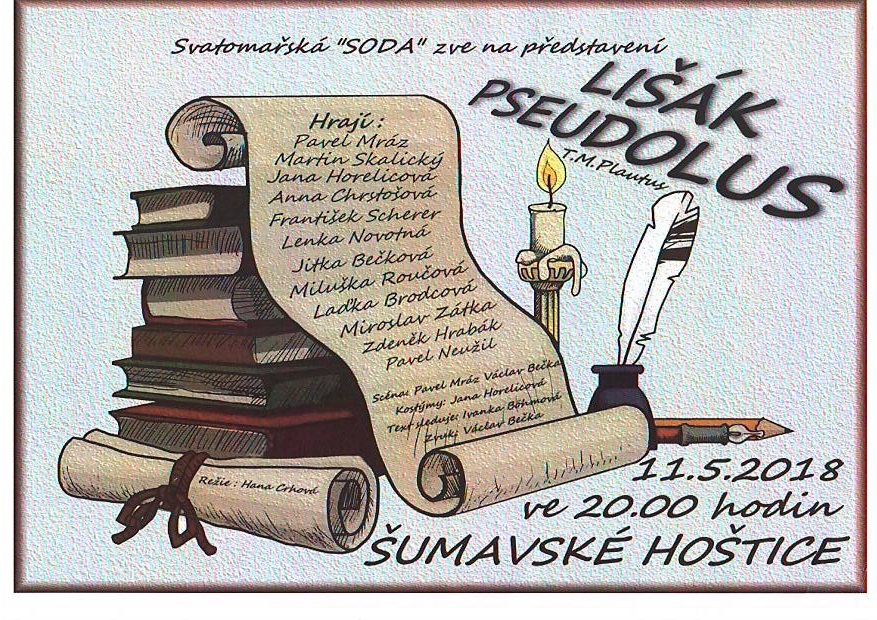 Svatomařská "SODA" zve na představení
LIŠÁK
PSEUDOLUS
T.M.Plautus
Hrají :
Pavel Mráz
Martin Skalický
Jana Horelicová
Anna Chrstošová
František Scherer
Lenka Novotná
Jitka Bečková
Miluška Roučová
Laďka Brodcová
Miroslav Zátka
Zdeněk Hrabák
Pavel Neužil
Scéna: Pavel Mráz Václav Bečka
Kostýmy: Jana Horelicová
Text sleduje: Ivanka Böhmová
Zvuk: Václav Bečka
Režie : Hana Crhová
11.5.2018
ve 20.00 hodin
ŠUMAVSKÉ HOŠTICE